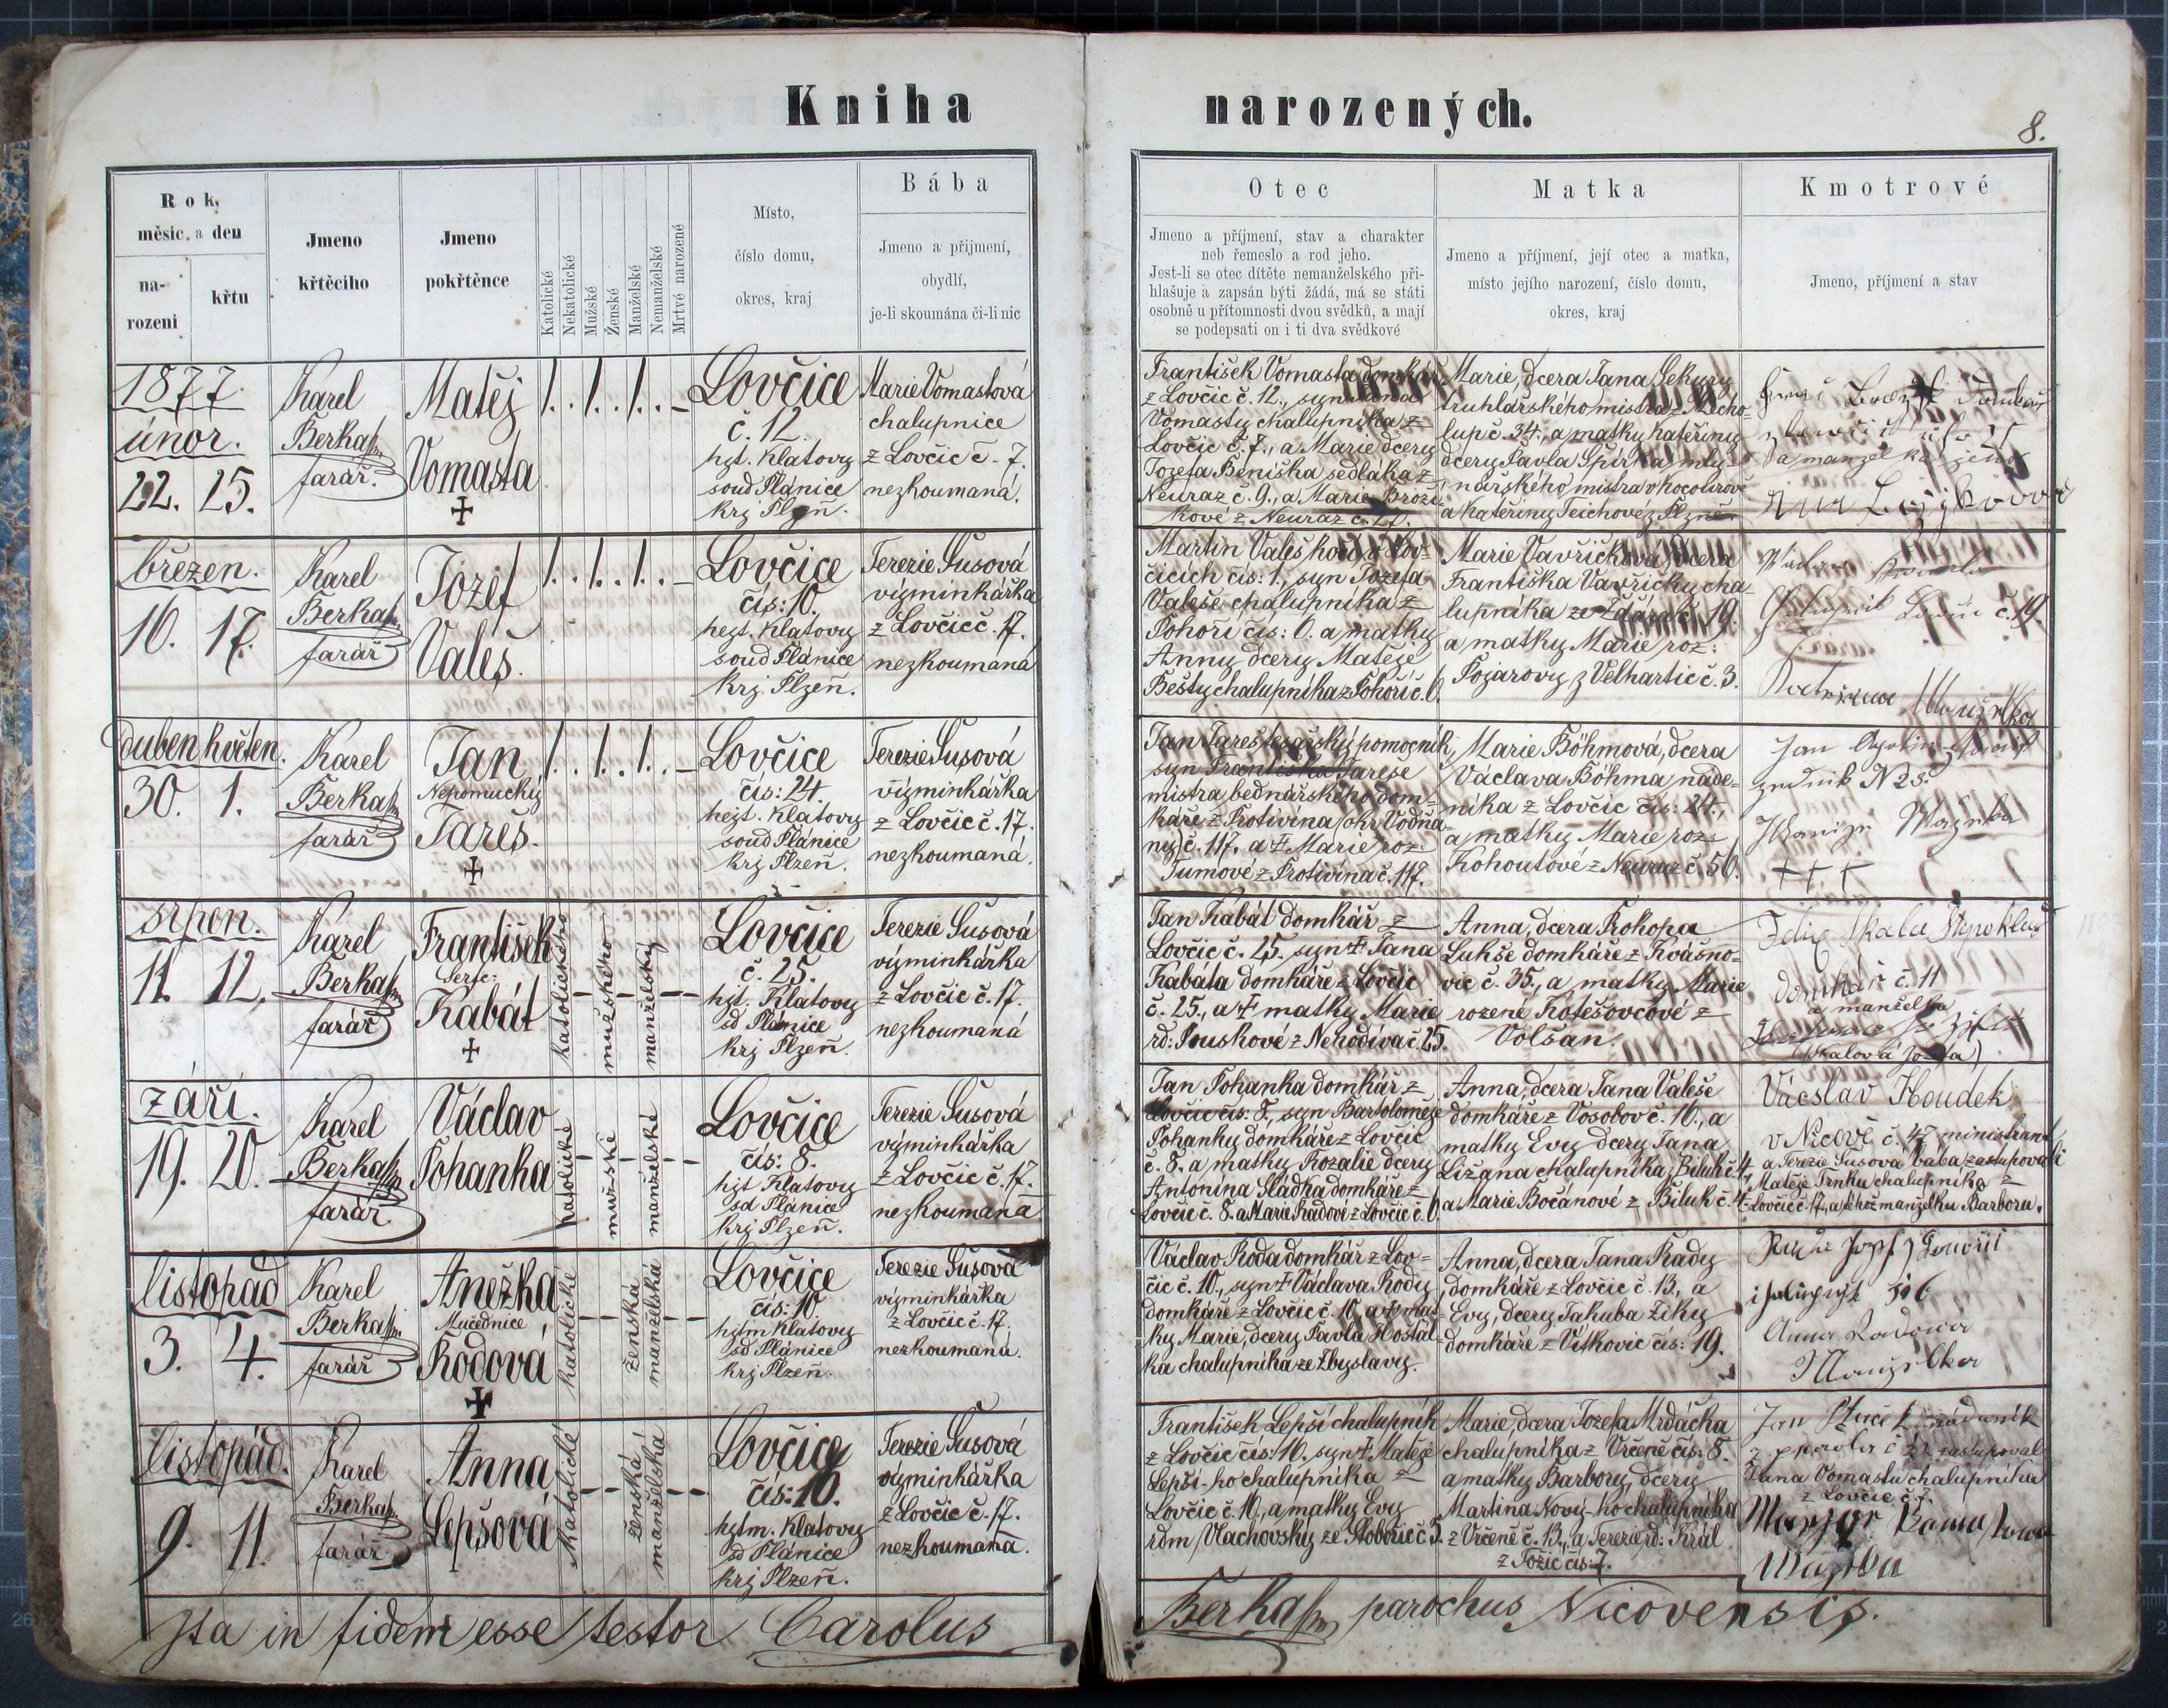 Kniha narozených.
8.
Rok, měsíc a den
na-
rozeni
křtu
Jmeno
křtěcího
Jmeno
pokřtěnce
Katolické
Nekatolické
Mužské
Ženské
Manželské
Nemanželské
Mrtvé narozené
Místo,
číslo domu,
okres, kraj
Bába
Jmeno a přijmení,
obydlí,
je-li skoumána či-li nic
Otec
Jmeno a příjmení, stav a charakter
neb řemeslo a rod jeho.
Jest-li se otec dítěte nemanželského při-
hlašuje a zapsán býti žádá, má se státi
osobně u přítomnosti dvou svědků, a mají
se podepsati on i ti dva svědkové
Matka
Jmeno a příjmení, její otec a matka,
místo jejího narození, číslo domu,
okres, kraj
Kmotrové
Jmeno, příjmení a stav
1877.
únor.
22. 25.
Karel
Berka
farář.
Matěj
Vomasta
Lovčice
č. 12.
hgt. Klatovy
soud Plánice
krj Plzeň.
Marie Vomastová
chalupnice
z Lovčic č. 7.
nezkoumaná.
František Vomasta domkář
z Lovčic č. 12., syn
Vomasty chalupníka z
Lovčic č. 7., a Marie dcery
Jozefa Beniška sedláka z
Neuraz č. 9., a Marie Brozí-
kové z Neuraz
Marie, dcera Jana Sekyry
truhlářského mistra z Mecho-
lup č. 34., a matky Kateřiny
dcery Pavla Špirka mly-
nářského mistra
a Kateřiny Teichove z Plzně
březen.
16. 17.
Karel
Berka
farář
Jozef
Valeš.
Lovčice
čís: 10.
hejt. Klatovy
soud Plánice
krj. Plzeň.
Terezie Susová
výminkářka
z Lovčic č. 17.
nezkoumaná
Martin Valeš
čicích čís: 1., syn Jozefa
Valeše chalupníka z
Pohoří čís: 6. a matky
Anny dcery Matěje
Bešty chalupníka z Pohoří č. 6.
Marie Vavřičková, dcera
Františka Vavřičky cha-
lupníka ze Ždáru č. 19.
a matky Marie roz:
Fojarovy z Velhartic č. 3.
č. 19.
duben květen.
30. 1.
Karel
Berka
farář
Jan
Nepomucký
Tareš.
Lovčice
čís: 24.
hejt. Klatovy
soud Plánice
krj Plzeň.
Terezie Susová
výminkářka
z Lovčic č. 17.
nezkoumaná.
Jan Tareš tesařský pomocník,
syn Františka Tareše
mistra bednářského dom-
káře z Protivína okr. Vodňa-
ny č. 117. a Marie roz:
Tumové z Protivína č. 117.
Marie Böhmová, dcera
Václava Böhma náde-
níka z Lovčic čís: 24.,
a matky Marie roz:
Kohoutové z Neuraz č. 50.
+ + +
srpen.
11. 12.
Karel
Berka
farář
František
Serf:
Kabát
katolického
mužského
manželský
Lovčice
č. 25.
hjt. Klatovy
sd Plánice
krj Plzeň.
Terezie Susová
výminkářka
z Lovčic č. 17.
nezkoumaná
Jan Kabát domkář z
Lovčic č. 25. syn Jana
Kabáta domkáře z Lovčic
č. 25., a matky Marie
rd: Pouskové z Nehodíva č. 25.
Anna, dcera Prokopa
Lukše domkáře z Kvášno-
vic č. 35., a matky Marie
rozené Kotešovcové z
Volšan.
domkář č. 11
a manželka
září.
19. 20.
Karel
Berka
farář
Václav
Pohanka
katolické
mužské
manželské
Lovčice
čís: 8.
hjt Klatovy
sd Plánice
krj Plzeň.
Terezie Susová
výminkářka
z Lovčic č. 17.
nezkoumaná
Jan Pohanka domkář z
Lovčic čís: 8., syn Bartoloměje
Pohanky domkáře z Lovčic
č. 8. a matky Rozalie dcery
Antonína Sládka domkáře z
Lovčic č. 8. a Marie Kadové z Lovčic č. 6.
Anna, dcera Jana Valeše
domkáře z Vosobov č. 10., a
matky Evy dcery Jana
Lizana chalupníka z Biluk č. 4.
a Marie Bočánové z Biluk č. 4.
Václav Houdek
v Nicově č. 47 ministrant
a Terezie Susová bába zastupovali
Matěje Trnku chalupníka z
Lovčic č. 17., a téhož manželku Barboru.
listopad
3. 4.
Karel
Berka
farář
Anežka
Mučednice
Rodová
katolické
ženská
manželská
Lovčice
čís: 10
hjtm Klatovy
sd Plánice
krj Plzeň.
Terezie Susová
výminkářka
z Lovčic č. 17.
nezkoumaná.
Václav Roda domkář z Lov-
čic č. 10., syn Václava Rody
domkáře z Lovčic č. 10., a mat-
ky Marie, dcery Pavla Hostál-
ka chalupníka ze Zbyslavy.
Anna, dcera Jana Kady
domkáře z Lovčic č. 13., a
Evy, dcery Jakuba Ziky
domkáře z Vítkovic čís: 19.
listopad.
9. 11.
Karel
Berka
farář
Anna
Lepšová
katolické
ženská
manželská
Lovčice
čís: 16.
hjtm. Klatovy
sd Plánice
krj Plzeň.
Terezie Susová
výminkářka
z Lovčic č. 17.
nezkoumaná.
František Lepší chalupník
z Lovčic čís: 16. syn Matěje
Lepší-ho chalupníka z
Lovčic č. 16., a matky Evy
rdm Vlachovsky ze Soboric č 5.
Marie, dcera Jozefa Mrdáčka
chalupníka z Vrčeně čís: 8.
a matky Barbory, dcery
Martina Nový-ho chalupníka
z Vrčeně č. 13., a Terezie rd: Král
z Tožic čís: 7.
zastupoval
Jana Vomastu chalupníka
z Lovčic č. 7.
Ita in fidem esse testor Carolus Berka parochus Nicovensis.